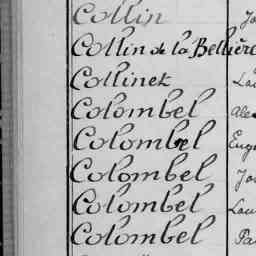 Collin
Collin de la Bellière
Collinet
Colombel
Colombel
Colombel
Colombel
Colombel